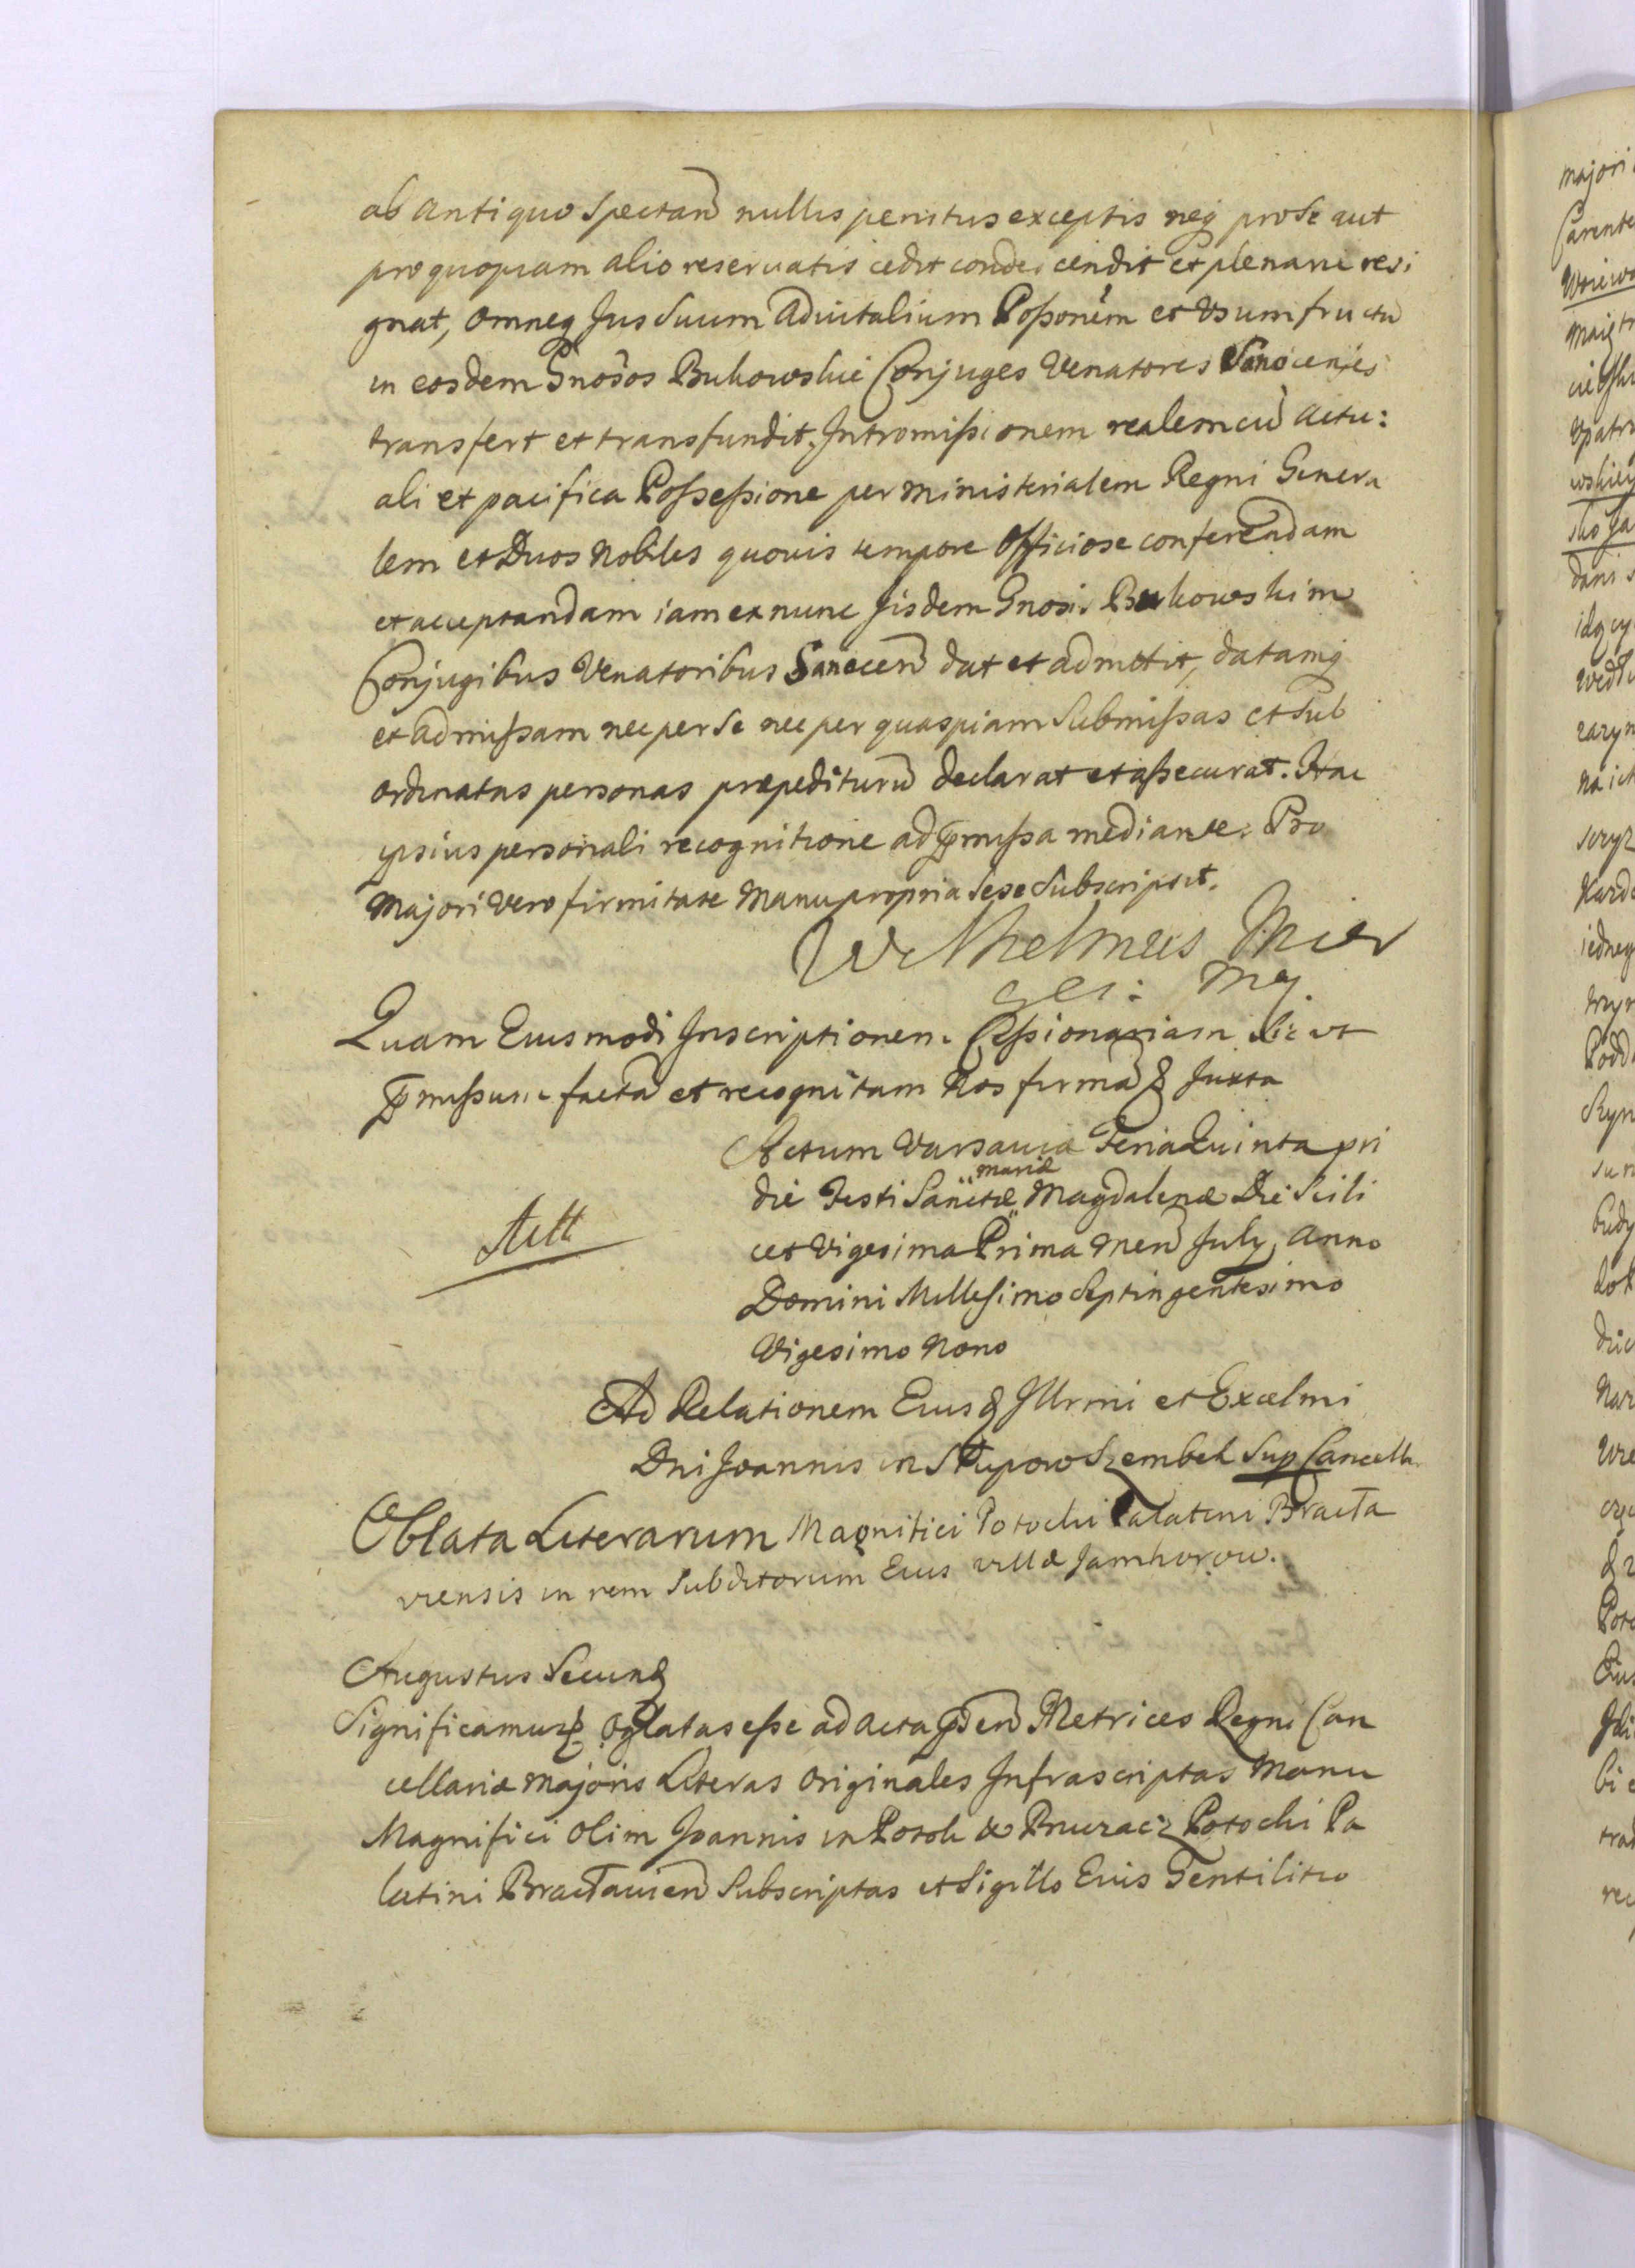 ab antiquo Spectan nullis penitus exceptis neq pro Se aut
pro quopiam alio reservatis cedit condescendit et plenarie resi
gnat, omneq Jus Suum Advitalium Possonem et Usumfructu
in eosdem Gnosos Bukowskie Conjuges Venatores Sanocenses
transfert et transfundit. Intromissionem realem cu actu:
ali et pacifica Possessione per ministerialem Regni Genera
lem et Duos Nobiles quovis tempore officiose conferendam
et acceptandam iam ex nunc Jisdem Gnosis Bukowskim
Conjugibus Venatoribus Sanocen dat et admittit, datamq
et admissam nec per Se nec per quaspiam Submissas et Sub
ordinatas personas præpediturũ declarat et assecurat. Hac
ipsius personali recognitione ad pmissa mediante. Pro
Majori vero firmitate Manu propria Sese Subscripsit.
Wilhelmus Mier
Mg.
Quam Eiusmodi Inscriptionem Cessionariam Sic ut
pmissum facta et recognitam Nos firma & Juxta
Actum Varsavia Feria Quinta pri
die Festi Sanctæ Mariæ Magdalenæ Die Scili
cet Vigesima Prima Men July Anno
Domini Millesimo Septingentesimo
Vigesimo Nono
Ad Relationem Eius & Illrmi et Excelmi
Dni Joannis in Słupow Szembek Sup Cancell
Oblata Literarum Magnifici Potocki Palatini Bracta
viensis in rem Subditorum Eius villæ Jamhorow.
Augustus Secun&
Significamus & Oblatas esse ad Acta pden Metrices Regni Can
cellariæ Majoris Literas originales Infrascriptas Manu
Magnifici olim Joannis in Potok & Brzuracz Potocki Pa
latini Bractavien Subscriptas et Sigillo Eius Gentilitio